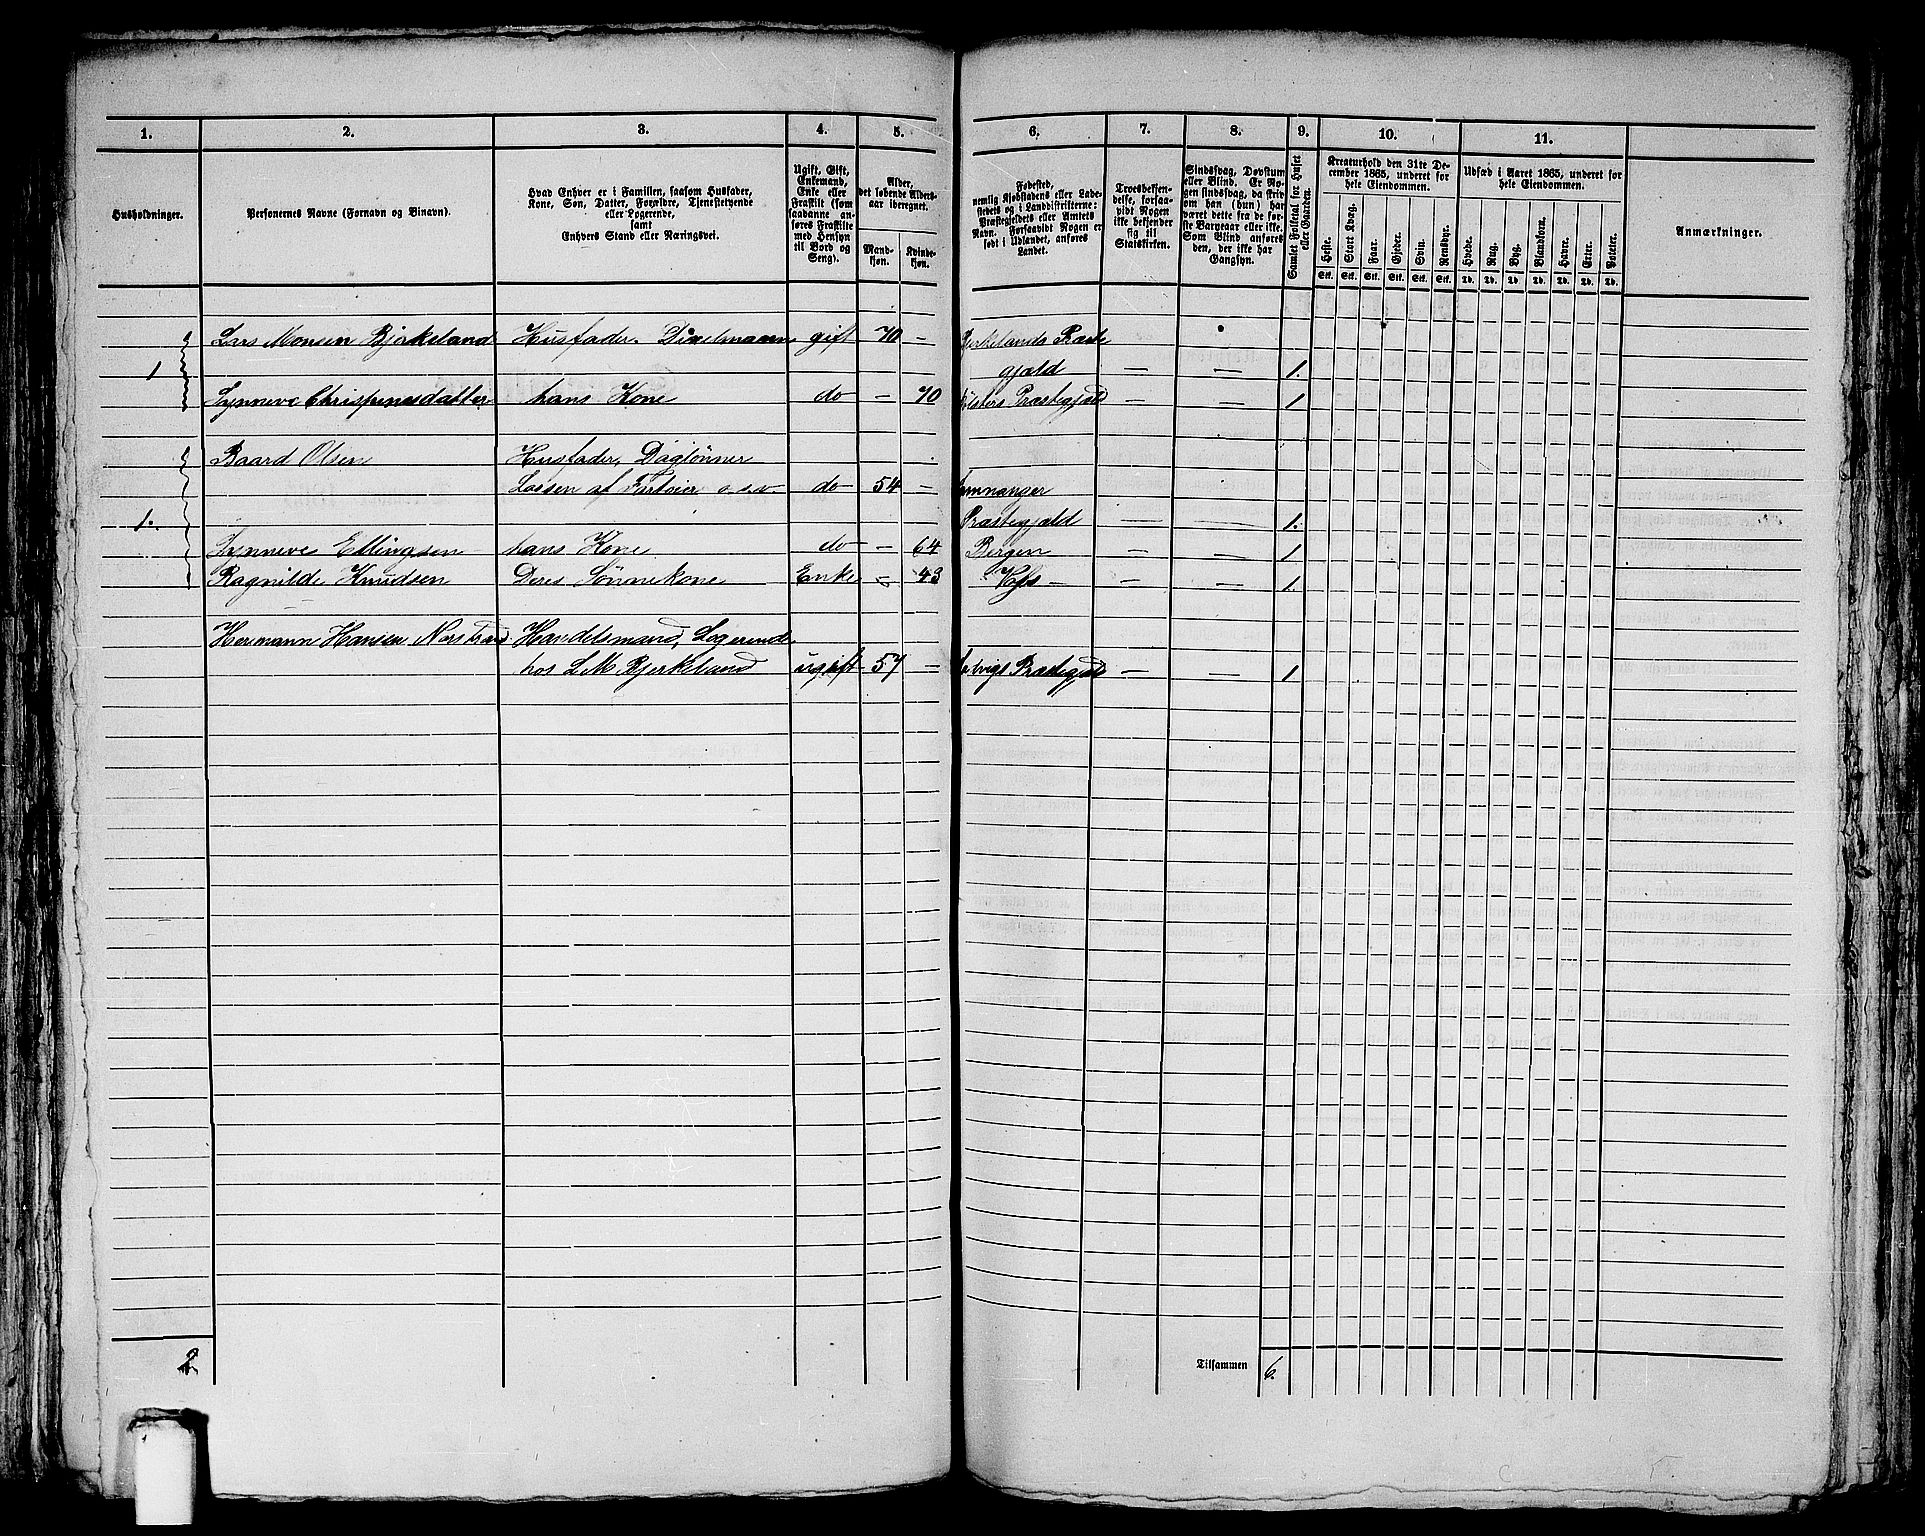 1. 2. 3. 4. 5. 6. 7. 8. 9. 10. 11.
Husholdninger.
Personernes Navne (Fornavn og Binavn).
Hvad Enhver er i Familien, saasom Husfader,
Kone, Søn, Datter, Forældre, Tjenestetyende
eller Logerende,
samt
Enhvers Stand eller Næringsvei.
Ugift, Gift,
Enkemand,
Enke eller
Fraskilt (som
saadanne an-
føres Fraskilte
med Hensyn
til Bord og
Seng).
Alder,
det løbende Alders-
aar iberegnet.
Mand-
kjøn.
Kvinde-
kjøn.
Fødested,
nemlig Kjøbstadens eller Lade-
stedets og i Landdistrikterne:
Præstegjeldets eller Amtets
Navn. Forsaavidt Nogen er
født i Udlandet, anføres
Landet.
Troesbekjen-
delse, forsaa-
vidt Nogen
ikke bekjender
sig til
Statskirken.
Sindssvag, Døvstum
eller Blind. Er No-
gen sindssvag, da skriv
om han (hun) har
været dette fra de før-
ste Barneaar eller ikke.
Som Blind anføres
den, der ikke har
Gangsyn.
Samlet Folketal for Huset
eller Gaarden.
Kreaturhold den 31te De-
cember 1865, underet for
hele Eiendommen.
Heste. Stort Kvæg. Faar. Gjeder. Svin. Rensdyr.
Stk. Stk. Stk. Stk. Stk. Stk.
Udsæd i Aaret 1865, underet for
hele Eiendommen.
Hvede. Rug. Byg. Blandkorn. Havre. Erter. Poteter.
Td. Td. Td. Td. Td. Td. Td.
Anmærkninger.
Lars Monsen Bjørkeland Husfader. gift 70 — Præste
1 gjæld — — 1.
Synneve Christensdatter hans Kone do — 70 Præstegjæld — — 1
Baard Olsen Husfader, Daglønner
Lossen af Fartøier o.s.v. do 54 —
1. Præstegjæld — — 1.
Synneve Ellingsen hans Kone do — 64 Bergen — — 1
Ragnilde Knudsen Deres Sønnekone Enke — 43 — — 1.
Hermann Hansen Handelsmand, Logerende
hos L. M. Bjerkeland ugift 57 — Præstegjæld — — 1
2
Tilsammen 6.